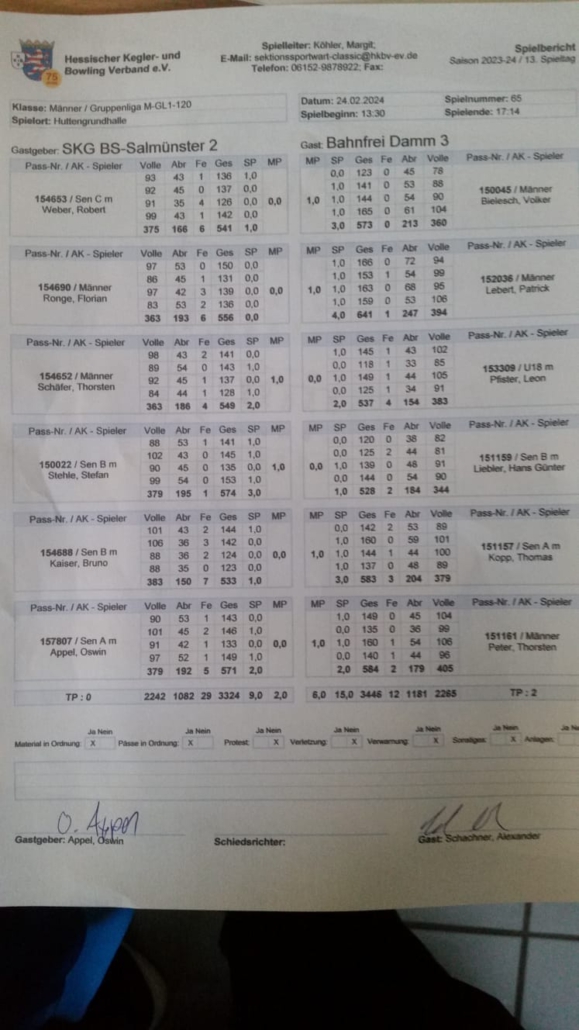 75
Hessischer Kegler- und
Bowling Verband e.V.
Spielleiter: Köhler, Margit;
E-Mail: sektionssportwart-classic@hkbv-ev.de
Telefon: 06152-9878922; Fax:
Spielbericht
Saison 2023-24 / 13. Spieltag
Klasse: Männer / Gruppenliga M-GL1-120
Spielort: Huttengrundhalle
Datum: 24.02.2024 Spielnummer: 65
Spielbeginn: 13:30 Spielende: 17:14
Gastgeber: SKG BS-Salmünster 2 Gast: Bahnfrei Damm 3
Pass-Nr. / AK - Spieler Volle Abr Fe Ges SP MP MP SP Ges Fe Abr Volle Pass-Nr. / AK - Spieler
93 43 1 136 1,0 0,0 123 0 45 78
92 45 0 137 0,0 1,0 141 0 53 88
154653 / Sen C m 91 35 4 126 0,0 0,0 1,0 1,0 144 0 54 90 150045 / Männer
Weber, Robert 99 43 1 142 0,0 1,0 165 0 61 104 Bielesch, Volker
375 166 6 541 1,0 3,0 573 0 213 360
Pass-Nr. / AK - Spieler Volle Abr Fe Ges SP MP MP SP Ges Fe Abr Volle Pass-Nr. / AK - Spieler
97 53 0 150 0,0 1,0 166 0 72 94
86 45 1 131 0,0 1,0 153 1 54 99
154690 / Männer 97 42 3 139 0,0 0,0 1,0 1,0 163 0 68 95 152036 / Männer
Ronge, Florian 83 53 2 136 0,0 1,0 159 0 53 106 Lebert, Patrick
363 193 6 556 0,0 4,0 641 1 247 394
Pass-Nr. / AK - Spieler Volle Abr Fe Ges SP MP MP SP Ges Fe Abr Volle Pass-Nr. / AK - Spieler
98 43 2 141 0,0 1,0 145 1 43 102
89 54 0 143 1,0 0,0 118 1 33 85
154652 / Männer 92 45 1 137 0,0 1,0 0,0 1,0 149 1 44 105 153309 / U18 m
Schäfer, Thorsten 84 44 1 128 1,0 0,0 125 1 34 91 Pfister, Leon
363 186 4 549 2,0 2,0 537 4 154 383
Pass-Nr. / AK - Spieler Volle Abr Fe Ges SP MP MP SP Ges Fe Abr Volle Pass-Nr. / AK - Spieler
88 53 1 141 1,0 0,0 120 0 38 82
102 43 0 145 1,0 0,0 125 2 44 81
150022 / Sen B m 90 45 0 135 0,0 1,0 0,0 1,0 139 0 48 91 151159 / Sen B m
Stehle, Stefan 99 54 0 153 1,0 0,0 144 0 54 90 Liebler, Hans Günter
379 195 1 574 3,0 1,0 528 2 184 344
Pass-Nr. / AK - Spieler Volle Abr Fe Ges SP MP MP SP Ges Fe Abr Volle Pass-Nr. / AK - Spieler
101 43 2 144 1,0 0,0 142 2 53 89
106 36 3 142 0,0 1,0 160 0 59 101
154688 / Sen B m 88 36 2 124 0,0 0,0 1,0 1,0 144 1 44 100 151157 / Sen A m
Kaiser, Bruno 88 35 0 123 0,0 1,0 137 0 48 89 Kopp, Thomas
383 150 7 533 1,0 3,0 583 3 204 379
Pass-Nr. / AK - Spieler Volle Abr Fe Ges SP MP MP SP Ges Fe Abr Volle Pass-Nr. / AK - Spieler
90 53 1 143 0,0 1,0 149 0 45 104
101 45 2 146 1,0 0,0 135 0 36 99
157807 / Sen A m 91 42 1 133 0,0 0,0 1,0 1,0 160 1 54 106 151161 / Männer
Appel, Oswin 97 52 1 149 1,0 0,0 140 1 44 96 Peter, Thorsten
379 192 5 571 2,0 2,0 584 2 179 405
TP : 0 2242 1082 29 3324 9,0 2,0 6,0 15,0 3446 12 1181 2265 TP : 2
Ja Nein Ja Nein Ja Nein Ja Nein Ja Nein Ja Nein Ja Ne
Material in Ordnung: X Pässe in Ordnung: X Protest: X Verletzung: X Verwarnung: X Sonstiges: X Anlagen:
O. Appel
Gastgeber: Appel, Oswin Schiedsrichter: Gast: Schachner, Alexander